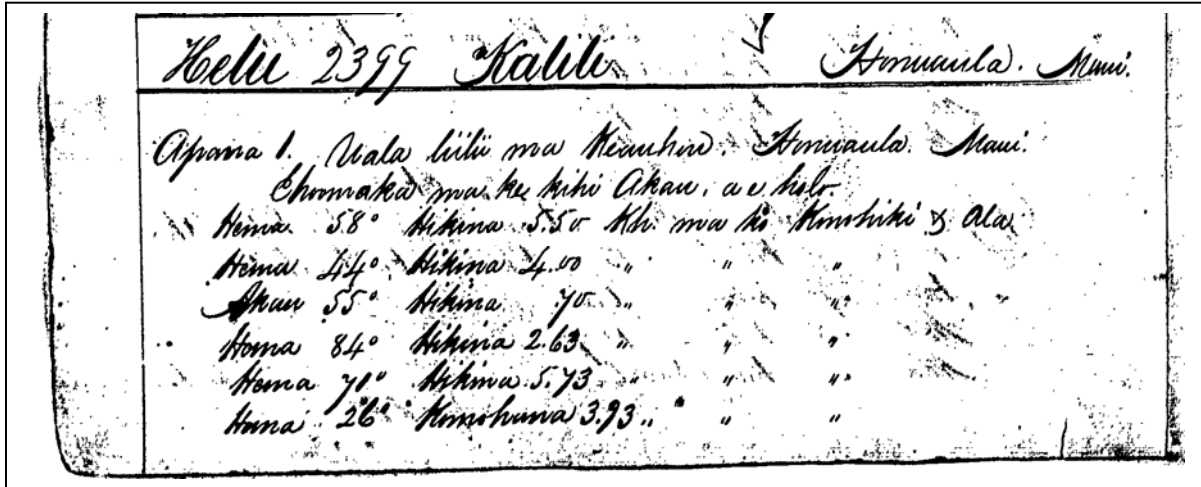 Helu 2399 Kalili Honuaula. Maui.
Apana 1. Uala liilii ma Keauhou. Honuaula. Maui.
Ehoomaka ma ke kihi Akau. a e holo
Hema 58° Hikina 5.50 Kh. ma ko Konohiki & Ala
Hema 44° Hikina 4.00 " " "
Akau 55° Hikina .70 " " "
Hema 84° Hikina 2.63 " " "
Hema 71° Hikina 5.73 " " "
Hema 26° Komohana 3.93 " " "